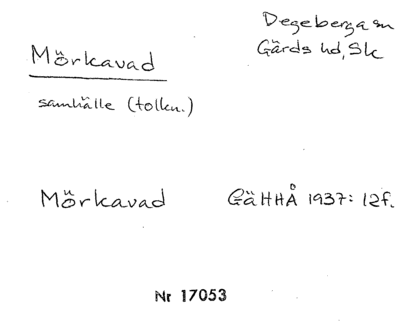 Mörkavad
Degeberga sn
Gärds hd, Sk
samhälle (tolkn.)
Mörkavad GäHHÅ 1937: 12f.
Nr 17053